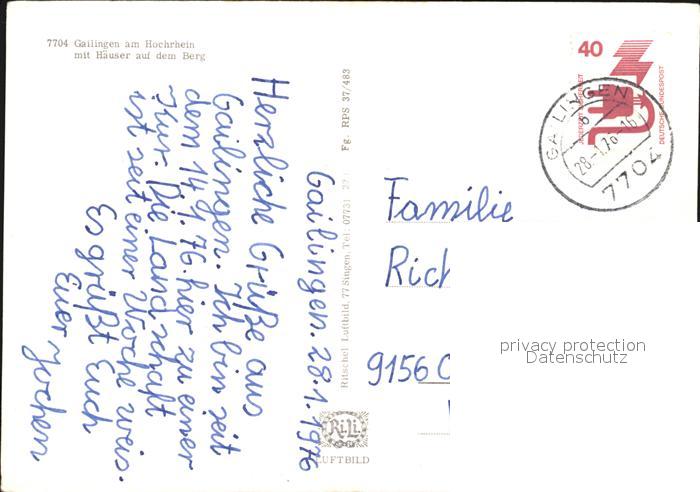 7704 Gailingen am Hochrhein
mit Häuser auf dem Berg
Gailingen. 28.1.1976
Herzliche Grüße aus
Gailingen. Ich bin seit
dem 14.1.76. hier zu einer
Kur. Die Landschaft
ist seit einer Woche weis.
Es grüßt Euch
Euer Jochen
Ritschel Luftbild, 77 Singen, Tel: 07731
Fg. RPS 37/483
RiLi
LUFTBILD
40
JEDERZEIT SICHERHEIT
DEUTSCHE BUNDESPOST
GAILINGEN
b
28.-1.76-16
7704
Familie
Rich
9156 C
privacy protection
Datenschutz